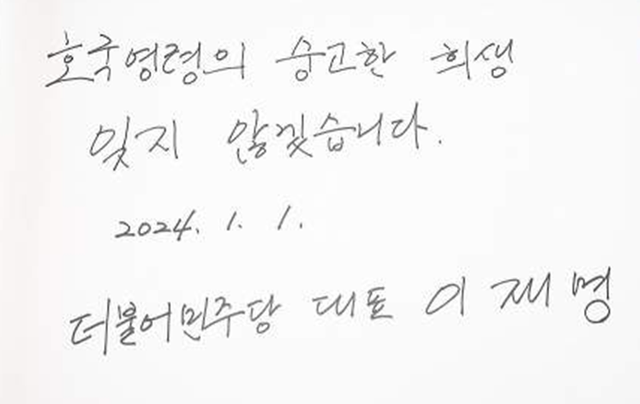 호국영령의 숭고한 희생
잊지 않겠습니다.
2024. 1. 1.
더불어민주당 대표 이재명